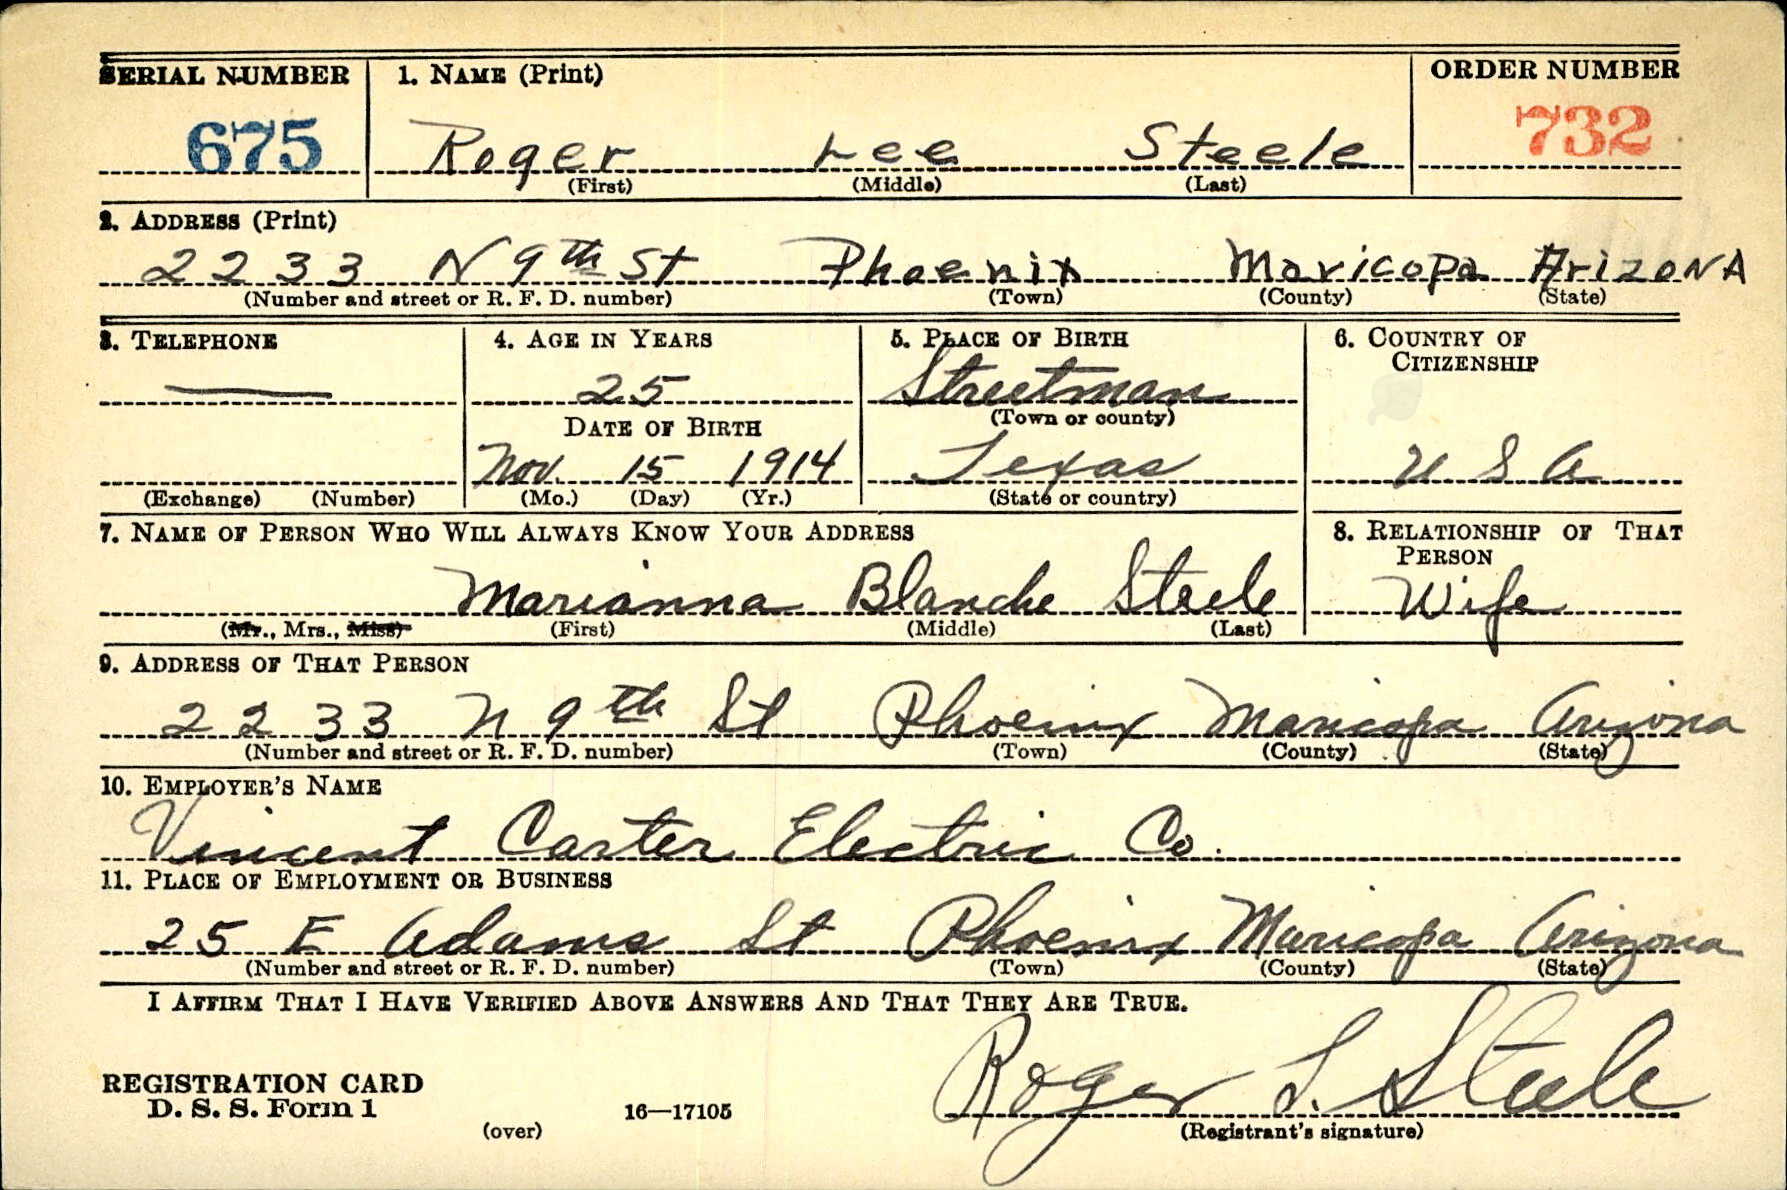 SERIAL NUMBER 1. NAME (Print) ORDER NUMBER
675 Roger Lee Steele 732
(First) (Middle) (Last)
2. ADDRESS (Print)
2233 N 9th St Phoenix Maricopa ArizoNA
(Number and street or R. F. D. number) (Town) (County) (State)
3. TELEPHONE 4. AGE IN YEARS 5. PLACE OF BIRTH 6. COUNTRY OF
CITIZENSHIP
— 25 Streetman
(Town or county)
DATE OF BIRTH
Nov. 15 1914 Texas U S A
(Exchange) (Number) (Mo.) (Day) (Yr.) (State or country)
7. NAME OF PERSON WHO WILL ALWAYS KNOW YOUR ADDRESS 8. RELATIONSHIP OF THAT
PERSON
Marianna Blanche Steele Wife
(Mr., Mrs., Miss) (First) (Middle) (Last)
9. ADDRESS OF THAT PERSON
2233 N 9th St Phoenix Maricopa Arizona
(Number and street or R. F. D. number) (Town) (County) (State)
10. EMPLOYER'S NAME
Vincent Carter Electric Co.
11. PLACE OF EMPLOYMENT OR BUSINESS
25 E Adams St Phoenix Maricopa Arizona
(Number and street or R. F. D. number) (Town) (County) (State)
I AFFIRM THAT I HAVE VERIFIED ABOVE ANSWERS AND THAT THEY ARE TRUE.
Roger L. Steele
REGISTRATION CARD
D. S. S. Form 1 16—17105
(over) (Registrant's signature)